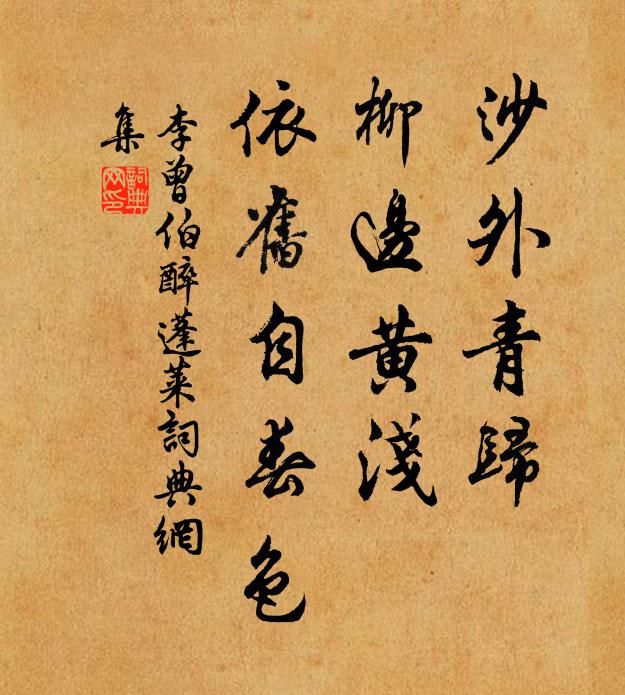 沙外青歸
柳邊黄淺
依舊自春色
李曾伯醉蓬萊詞典網
集
詞典
网印